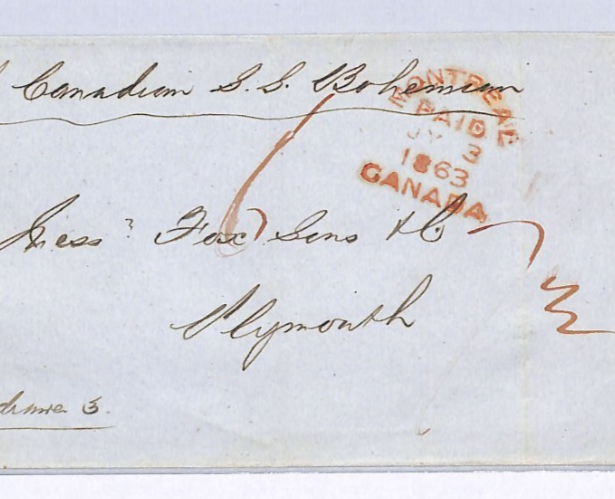 Canadian S.S. Bohemian
MONTREAL
PAID
JY 3
1863
CANADA
Messrs Fox Sons & Co
Plymouth
3.